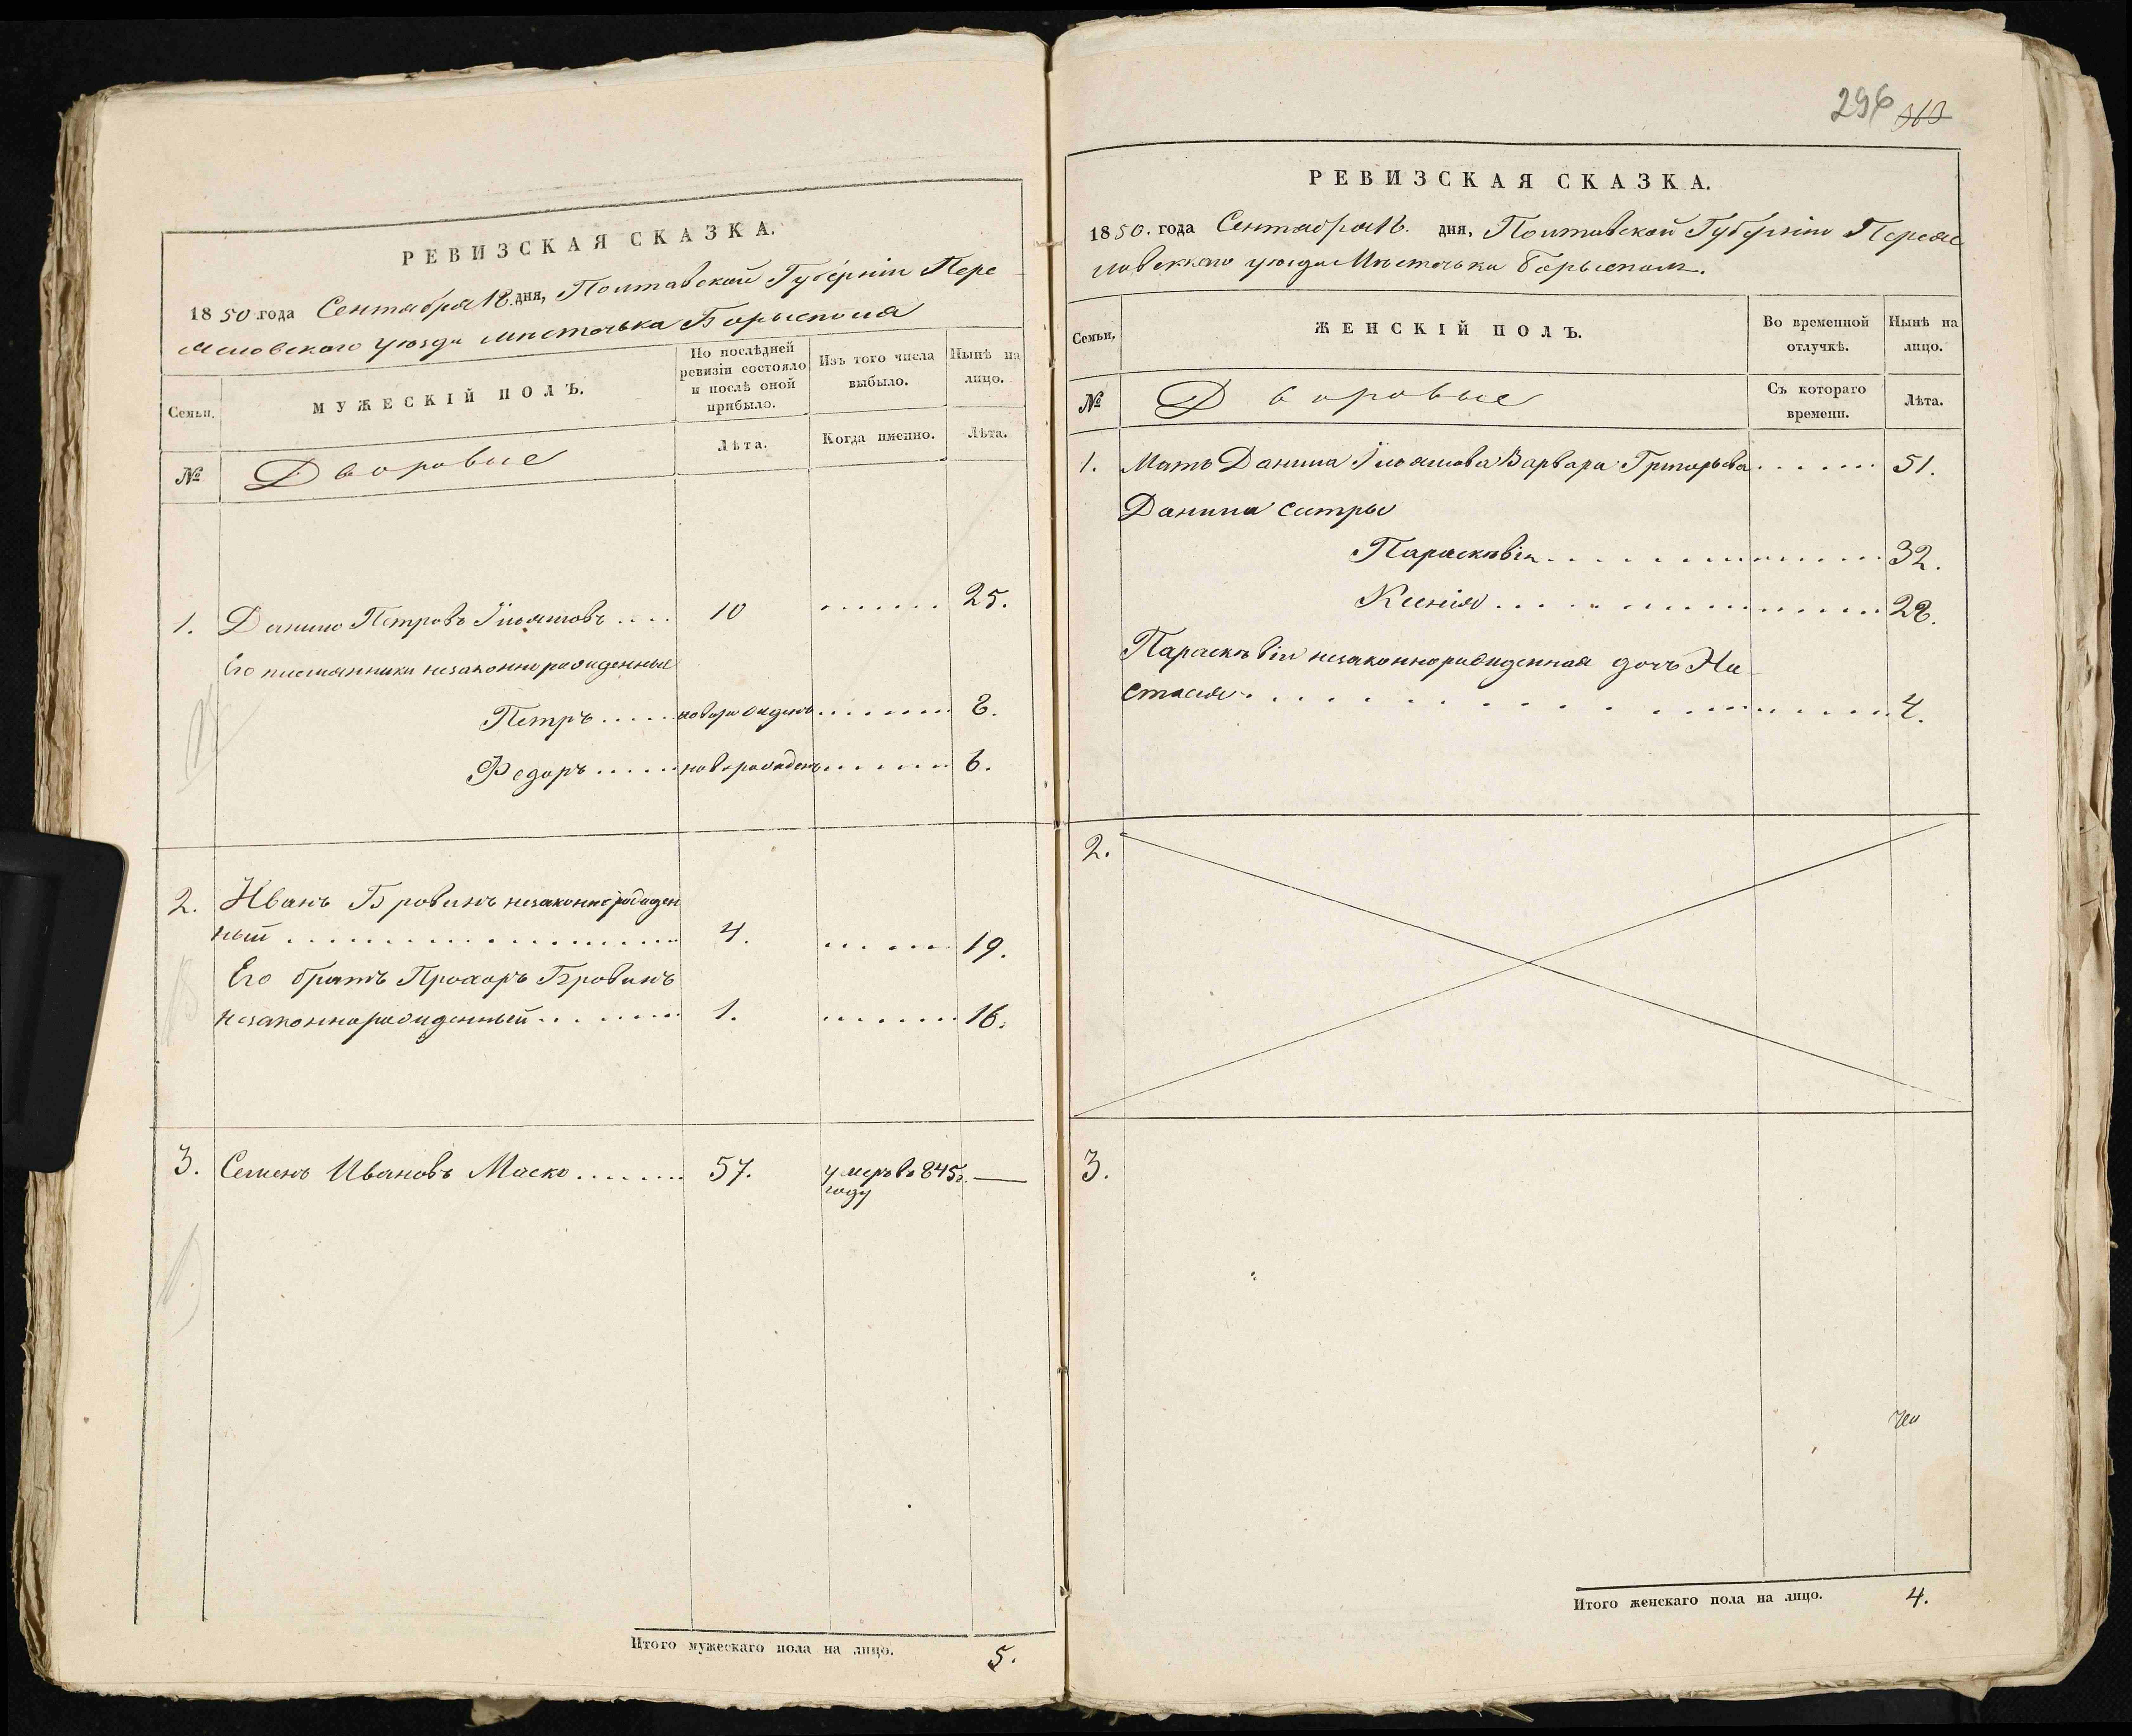 РЕВИЗСКАЯ СКАЗКА.
1850 года Сентября 18. дня, Полтавской Губерніи Пере
яславского уѣзда мѣсточька Борысполя
Семьи.
МУЖЕСКІЙ ПОЛЪ.
По послѣдней ревизіи состояло и послѣ оной прибыло.
Изъ того числа выбыло.
Нынѣ на лицо.
№
Дворовые
Лѣта.
Когда именно.
Лѣта.
1. Данило Петровъ .... 10 ....... 25.
Его племянники незаконнорожденные
Петръ ..... новорожденъ ........ 8.
Федоръ ..... новорожденъ ........ 6.
2. Иванъ Бровинъ незаконнорожден
ный .................... 4. ....... 19.
Его братъ Прохоръ Бровинъ
незаконнорожденный ........ 1. ........ 16.
3. Семенъ Ивановъ Маско ........ 57. умеръ въ 845м. —
году
Итого мужескаго пола на лицо. 5.
296 363
РЕВИЗСКАЯ СКАЗКА.
1850. года Сентября 18. дня, Полтавской Губерніи Переяс
лавского уѣзда Мѣсточька Борысполя.
Семьи.
ЖЕНСКІЙ ПОЛЪ.
Во временной отлучкѣ.
Нынѣ на лицо.
№
Дворовые
Съ котораго времени.
Лѣта.
1. Мать Данила Варвара Григорьева ...... 51.
Данила систры
Парасковія ............ 32.
Ксенія ............ 28.
Парасковіи незаконнорожденная дочь На
стасия ............ 4.
2.
3.
Итого женскаго пола на лицо. 4.